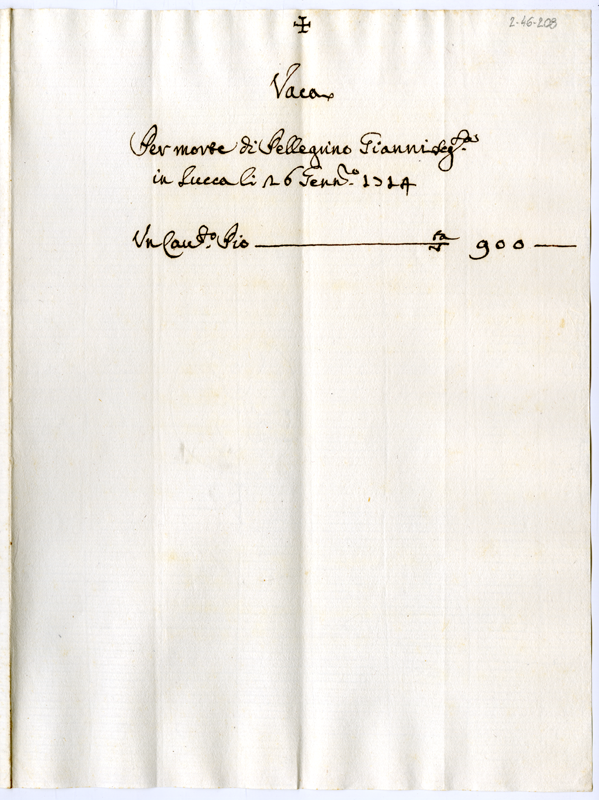 2-46-208
Vaca
Per morte di Pellegrino Gianni seg.ta
in Lucca li 26 Genn.o 1714
Un Cau.to Pio 900